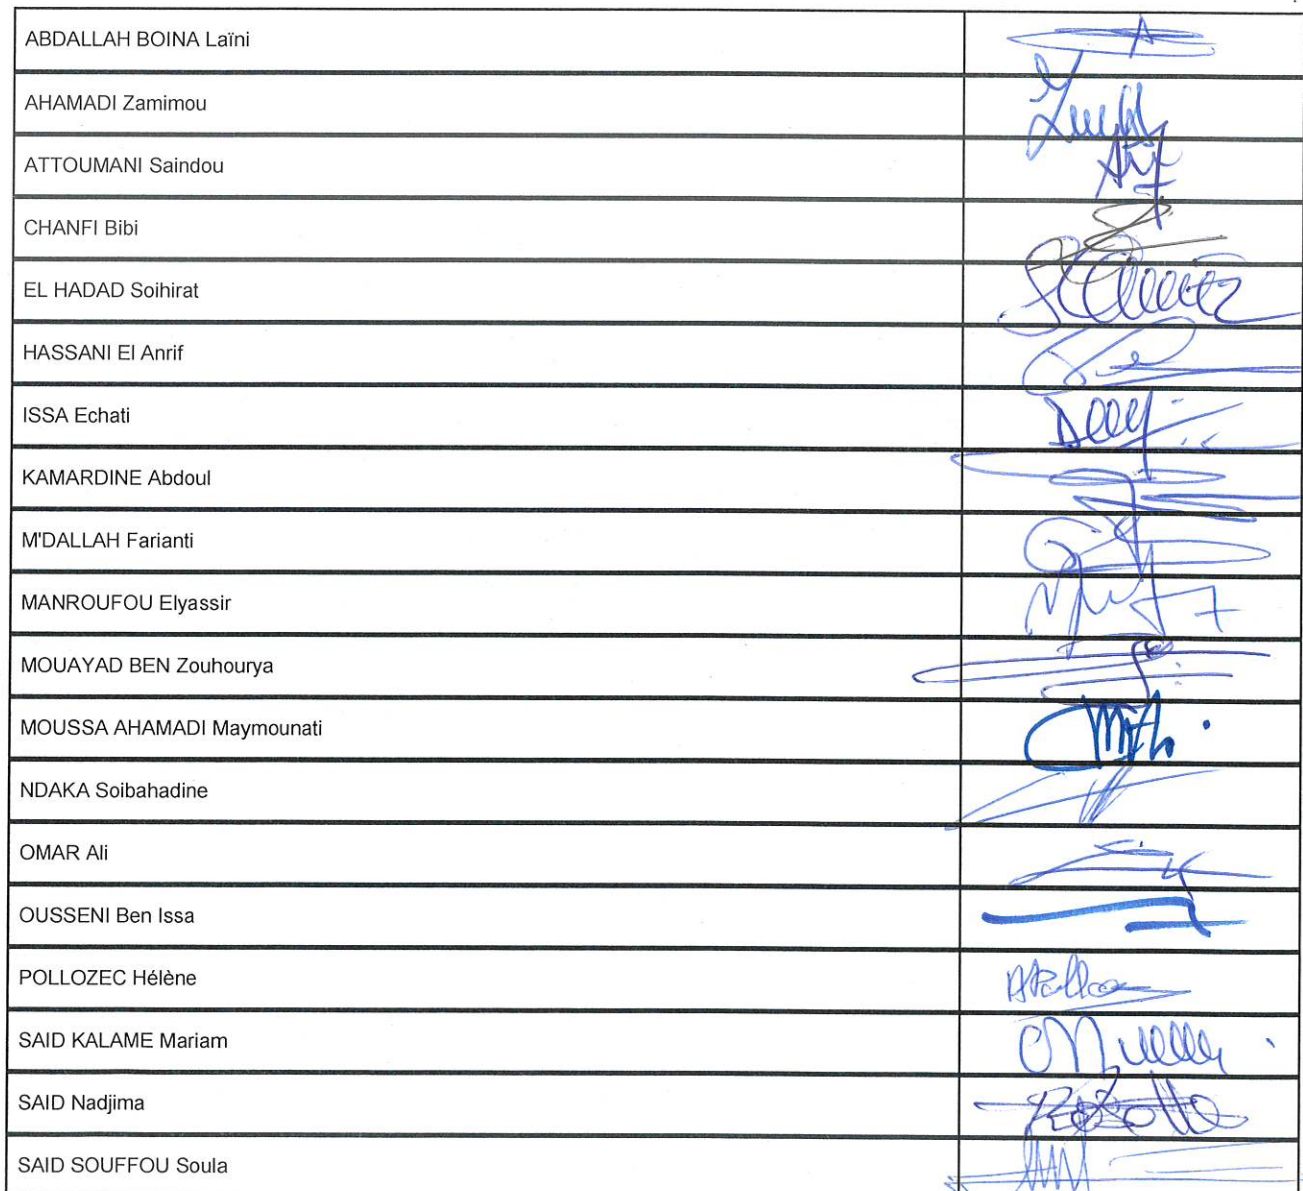 ABDALLAH BOINA Laïni
AHAMADI Zamimou
ATTOUMANI Saindou
CHANFI Bibi
EL HADAD Soihirat
HASSANI El Anrif
ISSA Echati
KAMARDINE Abdoul
M'DALLAH Farianti
MANROUFOU Elyassir
MOUAYAD BEN Zouhourya
MOUSSA AHAMADI Maymounati
NDAKA Soibahadine
OMAR Ali
OUSSENI Ben Issa
POLLOZEC Hélène
SAID KALAME Mariam
SAID Nadjima
SAID SOUFFOU Soula